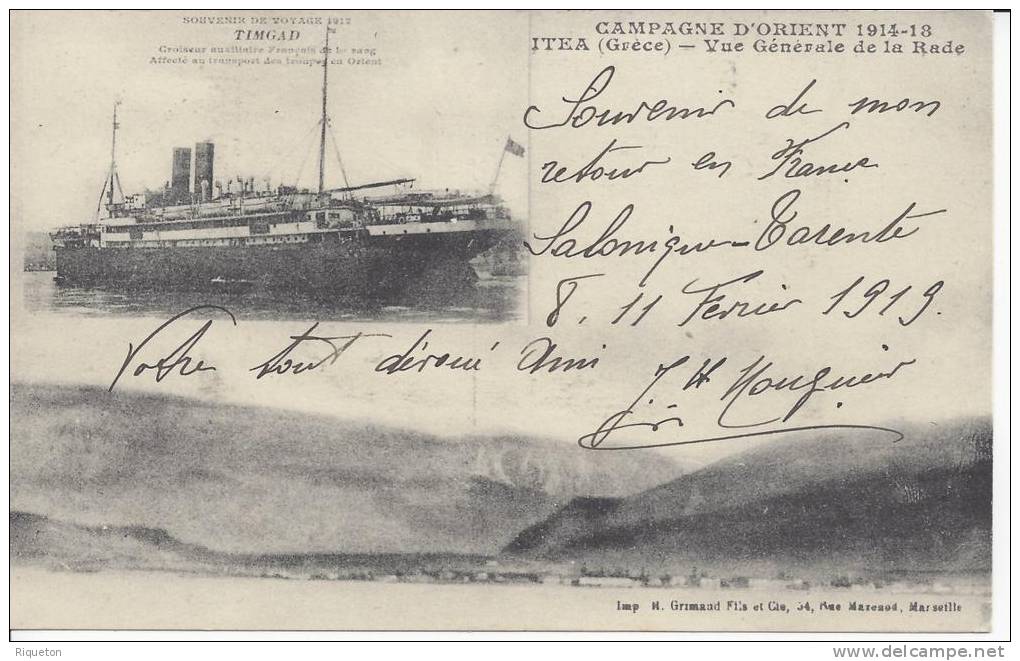 SOUVENIR DE VOYAGE 1917
TIMGAD
Croiseur auxiliaire Français de 1er rang
Affecté au transport des troupes en Orient
CAMPAGNE D'ORIENT 1914-18
ITEA (Grèce) — Vue Générale de la Rade
Souvenir de mon
retour en France
Salonique-Tarente
8. 11 Fevrier 1919.
Votre tout dévoué Ami
J H Mouguier
Imp M. Grimaud Fils et Cie, 54, Rue Mazenod, Marseille
Riqueton
www.delcampe.net